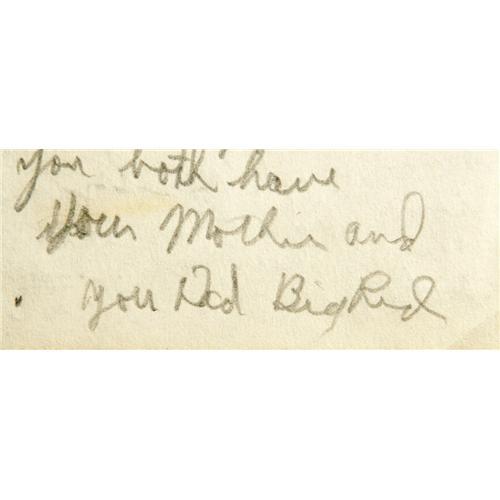 you both have
your Mother and
you Dad Big Red